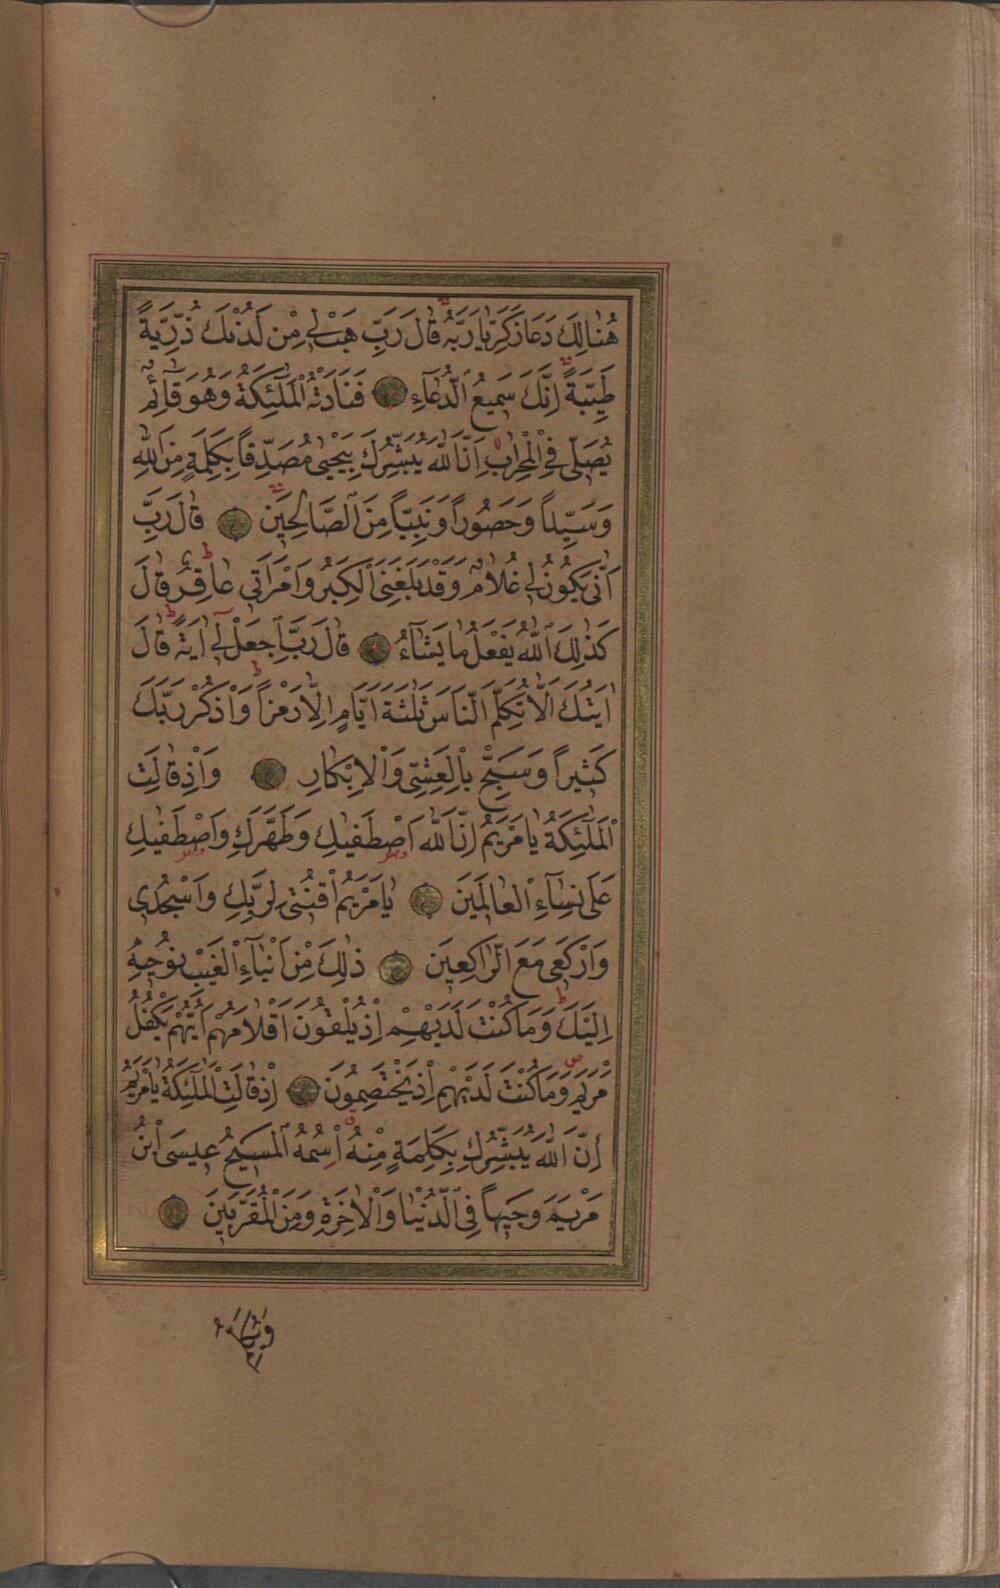 هُنَالِكَ دَعَا زَكَرِيَّا رَبَّهُ قَالَ رَبِّ هَبْ لِي مِنْ لَدُنْكَ ذُرِّيَّةً
طَيِّبَةً اِنَّكَ سَمِيعُ الدُّعَآءِ فَنَادَتْهُ الْمَلٰٓئِكَةُ وَهُوَ قَآئِمٌ
يُصَلِّى فِي الْمِحْرَابِ اَنَّ اللّٰهَ يُبَشِّرُكَ بِيَحْيٰى مُصَدِّقًا بِكَلِمَةٍ مِنَ اللّٰهِ
وَسَيِّدًا وَحَصُورًا وَنَبِيًّا مِنَ الصَّالِحِينَ قَالَ رَبِّ
اَنّٰى يَكُونُ لِي غُلَامٌ وَقَدْ بَلَغَنِىَ الْكِبَرُ وَامْرَاَتِى عَاقِرٌ قَالَ
كَذٰلِكَ اللّٰهُ يَفْعَلُ مَا يَشَآءُ قَالَ رَبِّ اجْعَلْ لِٓي اٰيَةً قَالَ
اٰيَتُكَ اَلَّا تُكَلِّمَ النَّاسَ ثَلٰثَةَ اَيَّامٍ اِلَّا رَمْزًا وَاذْكُرْ رَبَّكَ
كَثِيرًا وَسَبِّحْ بِالْعَشِىِّ وَالْاِبْكَارِ وَاِذْ قَالَتِ
الْمَلٰٓئِكَةُ يَا مَرْيَمُ اِنَّ اللّٰهَ اصْطَفٰيكِ وَطَهَّرَكِ وَاصْطَفٰيكِ
عَلٰى نِسَآءِ الْعَالَمِينَ يَا مَرْيَمُ اقْنُتِى لِرَبِّكِ وَاسْجُدِى
وَارْكَعِى مَعَ الرَّاكِعِينَ ذٰلِكَ مِنْ اَنْبَآءِ الْغَيْبِ نُوحِيهِ
اِلَيْكَ وَمَا كُنْتَ لَدَيْهِمْ اِذْ يُلْقُونَ اَقْلَامَهُمْ اَيُّهُمْ يَكْفُلُ
مَرْيَمَ وَمَا كُنْتَ لَدَيْهِمْ اِذْ يَخْتَصِمُونَ اِذْ قَالَتِ الْمَلٰٓئِكَةُ يَا مَرْيَمُ
اِنَّ اللّٰهَ يُبَشِّرُكِ بِكَلِمَةٍ مِنْهُ اسْمُهُ الْمَسِيحُ عِيسَى ابْنُ
مَرْيَمَ وَجِيهًا فِي الدُّنْيَا وَالْاٰخِرَةِ وَمِنَ الْمُقَرَّبِينَ
وَيُكَلِّمُ